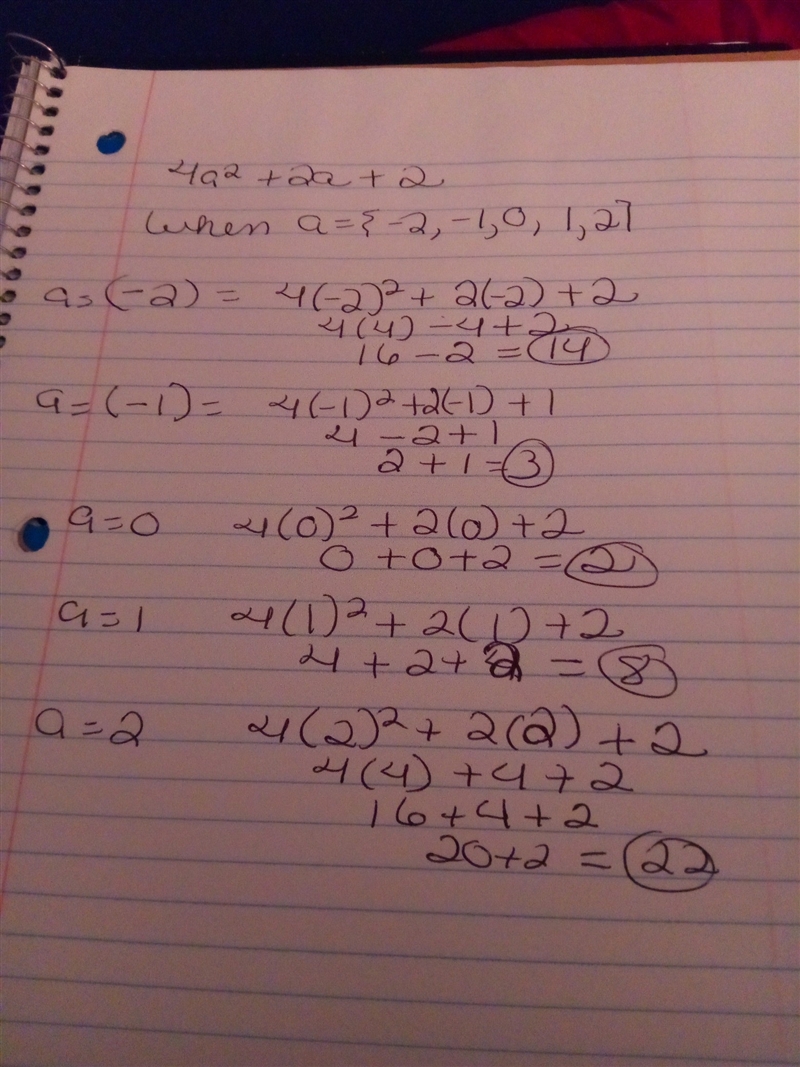 4a² + 2a + 2
when a = {-2, -1, 0, 1, 2}
a = (-2) = 4(-2)² + 2(-2) + 2
4(4) - 4 + 2
16 - 2 = 14
a = (-1) = 4(-1)² + 2(-1) + 1
4 - 2 + 1
2 + 1 = 3
a = 0 4(0)² + 2(0) + 2
0 + 0 + 2 = 2
a = 1 4(1)² + 2(1) + 2
4 + 2 + 2 = 8
a = 2 4(2)² + 2(2) + 2
4(4) + 4 + 2
16 + 4 + 2
20 + 2 = 22